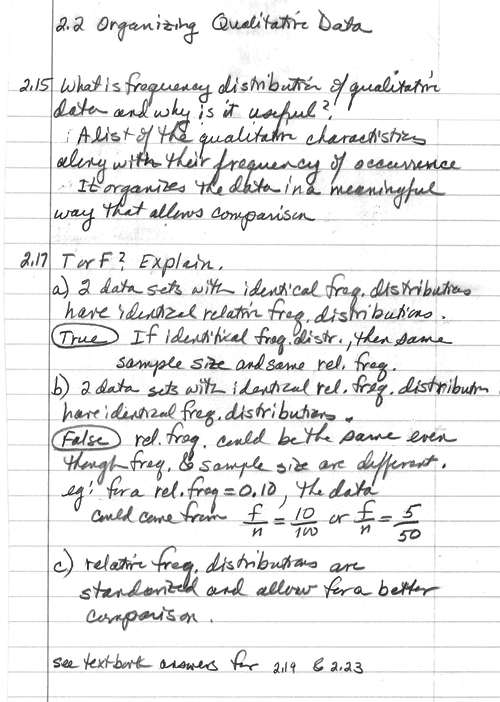 2.2 Organizing Qualitative Data
2.15 What is frequency distribution of qualitative
data and why is it useful?
: A list of the qualitative characteristics
along with their frequency of occurrence
It organizes the data in a meaningful
way that allows comparison
2.17 T or F? Explain.
a) 2 data sets with identical freq. distributions
have identical relative freq. distributions.
True If identifical freq. distr., then same
sample size and same rel. freq.
b) 2 data sets with identical rel. freq. distribution
have identical freq. distributions.
False rel. freq. could be the same even
though freq. & sample size are different.
eg: for a rel. freq = 0.10, the data
could come from f/n = 10/100 or f/n = 5/50
c) relative freq. distributions are
standardized and allow for a better
comparison.
see textbook answers for 2.19 & 2.23